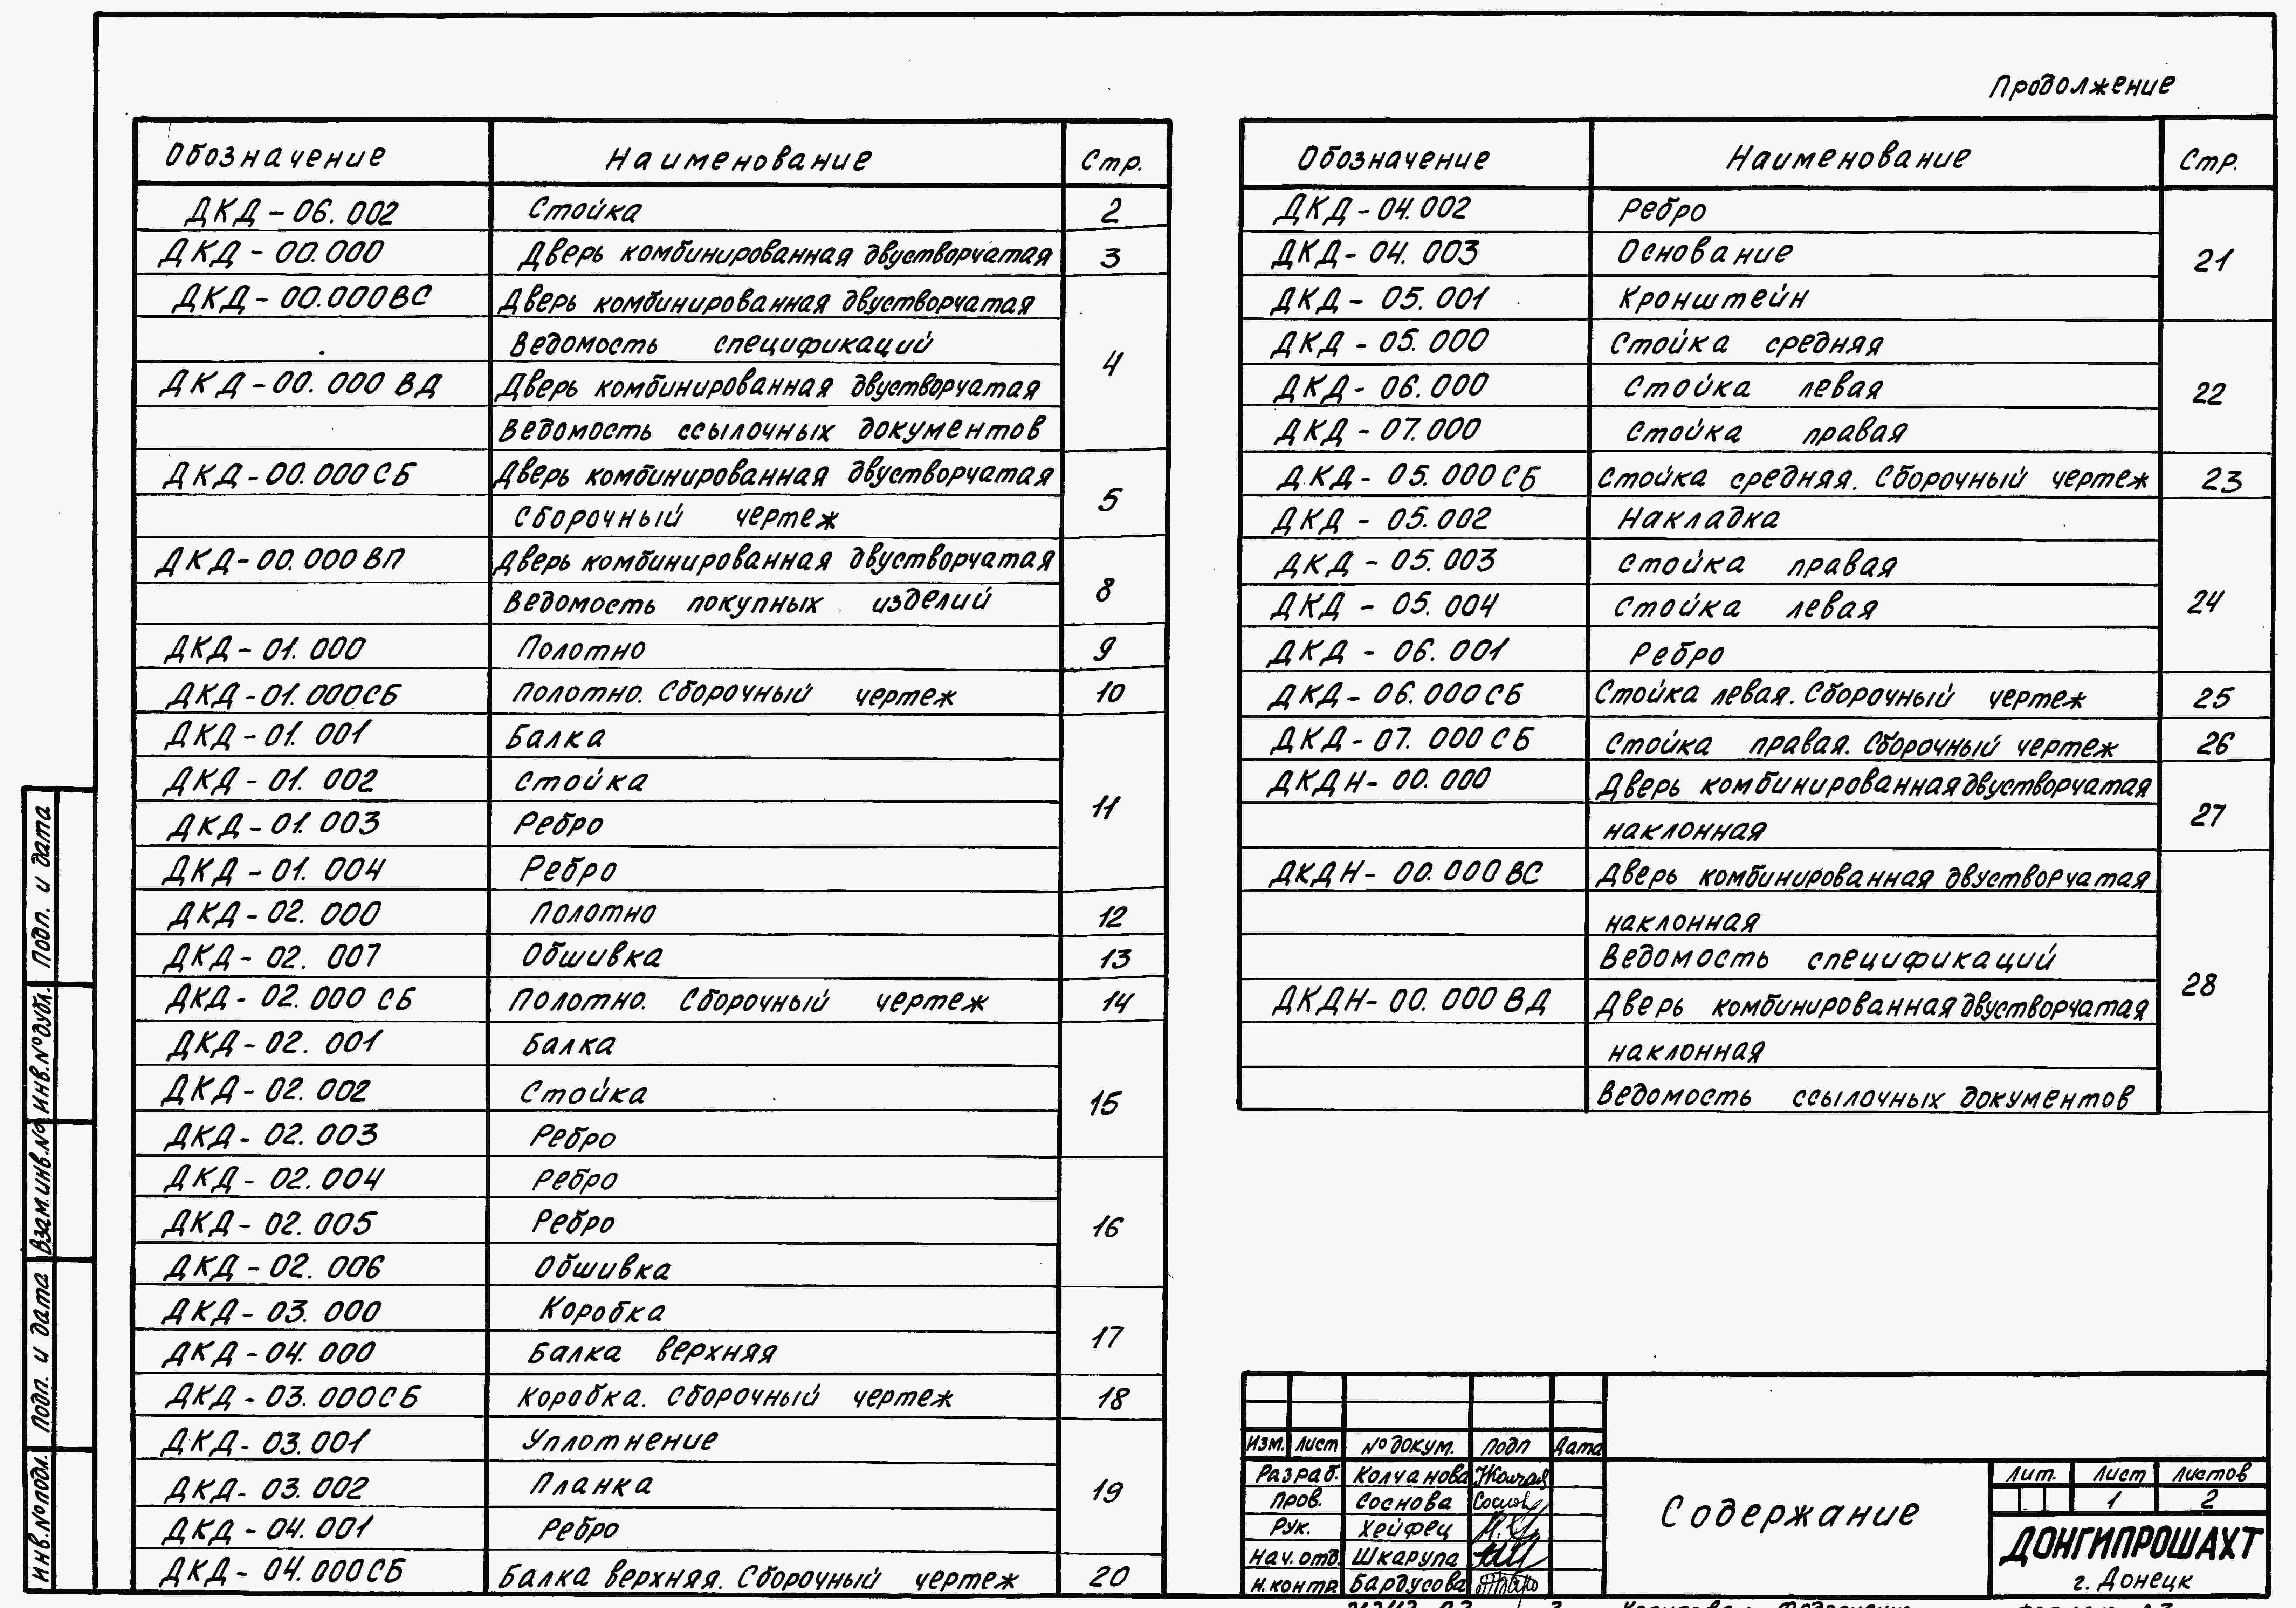 Продолжение
Обозначение Наименование Стр.
ДКД-06.002 Стойка 2
ДКД-00.000 Дверь комбинированная двустворчатая 3
ДКД-00.000ВС Дверь комбинированная двустворчатая
Ведомость спецификаций 4
ДКД-00.000 ВД Дверь комбинированная двустворчатая
Ведомость ссылочных документов
ДКД-00.000СБ Дверь комбинированная двустворчатая
Сборочный чертеж 5
ДКД-00.000 ВП Дверь комбинированная двустворчатая
Ведомость покупных изделий 8
ДКД-01.000 Полотно 9
ДКД-01.000СБ Полотно. Сборочный чертеж 10
ДКД-01.001 Балка
ДКД-01.002 Стойка
ДКД-01.003 Ребро 11
ДКД-01.004 Ребро
ДКД-02.000 Полотно 12
ДКД-02.007 Обшивка 13
ДКД-02.000 СБ Полотно. Сборочный чертеж 14
ДКД-02.001 Балка
ДКД-02.002 Стойка 15
ДКД-02.003 Ребро
ДКД-02.004 Ребро
ДКД-02.005 Ребро 16
ДКД-02.006 Обшивка
ДКД-03.000 Коробка
ДКД-04.000 Балка верхняя 17
ДКД-03.000СБ Коробка. Сборочный чертеж 18
ДКД-03.001 Уплотнение
ДКД-03.002 Планка 19
ДКД-04.001 Ребро
ДКД-04.000СБ Балка верхняя. Сборочный чертеж 20
Обозначение Наименование Стр.
ДКД-04.002 Ребро
ДКД-04.003 Основание 21
ДКД-05.001 Кронштейн
ДКД-05.000 Стойка средняя
ДКД-06.000 Стойка левая 22
ДКД-07.000 Стойка правая
ДКД-05.000СБ Стойка средняя. Сборочный чертеж 23
ДКД-05.002 Накладка
ДКД-05.003 Стойка правая
ДКД-05.004 Стойка левая 24
ДКД-06.001 Ребро
ДКД-06.000СБ Стойка левая. Сборочный чертеж 25
ДКД-07.000 СБ Стойка правая. Сборочный чертеж 26
ДКДН-00.000 Дверь комбинированная двустворчатая
наклонная 27
ДКДН-00.000 ВС Дверь комбинированная двустворчатая
наклонная
Ведомость спецификаций
ДКДН-00.000 ВД Дверь комбинированная двустворчатая 28
наклонная
Ведомость ссылочных документов
Изм. Лист № докум. Подп Дата
Разраб. Колчанова
Пров. Соснова
Рук. Хейфец
Нач. отд. Шкарупа
Н.контр. Бардусова
Содержание
Лит. Лист Листов
1 2
ДОНГИПРОШАХТ
г. Донецк
Подп. и дата
Инв.№ дубл.
Взам.инв.№
Подп. и дата
Инв.№ подл.